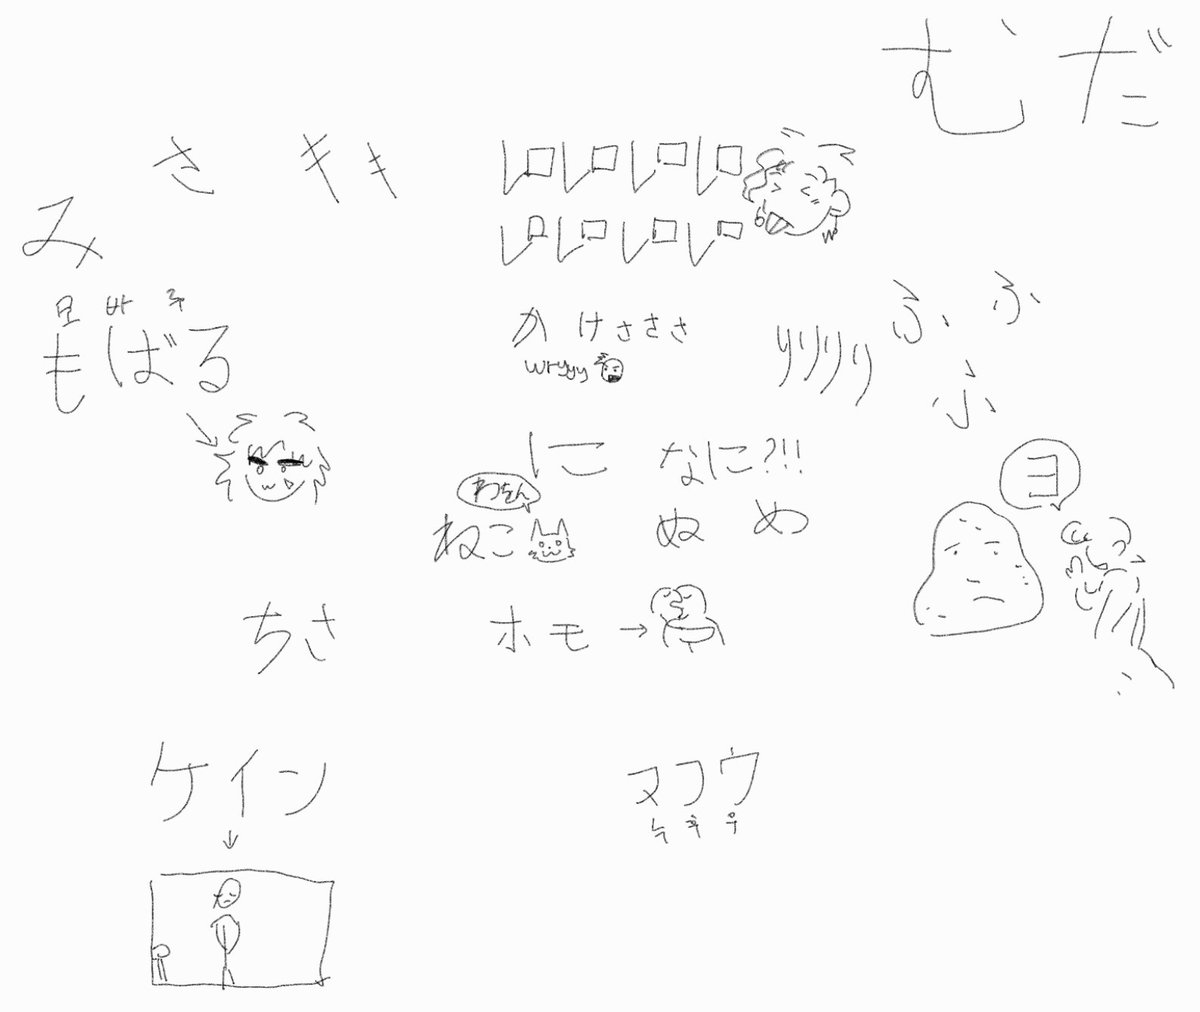 むだ
さキキ
み
レロレロレロレロ
レロレロレロレロ
모바루
もばる
かけささざ
wryyy
りりりり
ふふ
ふ
にこ
なに?!!
わをん
ねこ
ぬめ
ヨ
ちさ
ホモ→
ケイン
ヌフウ
누후우